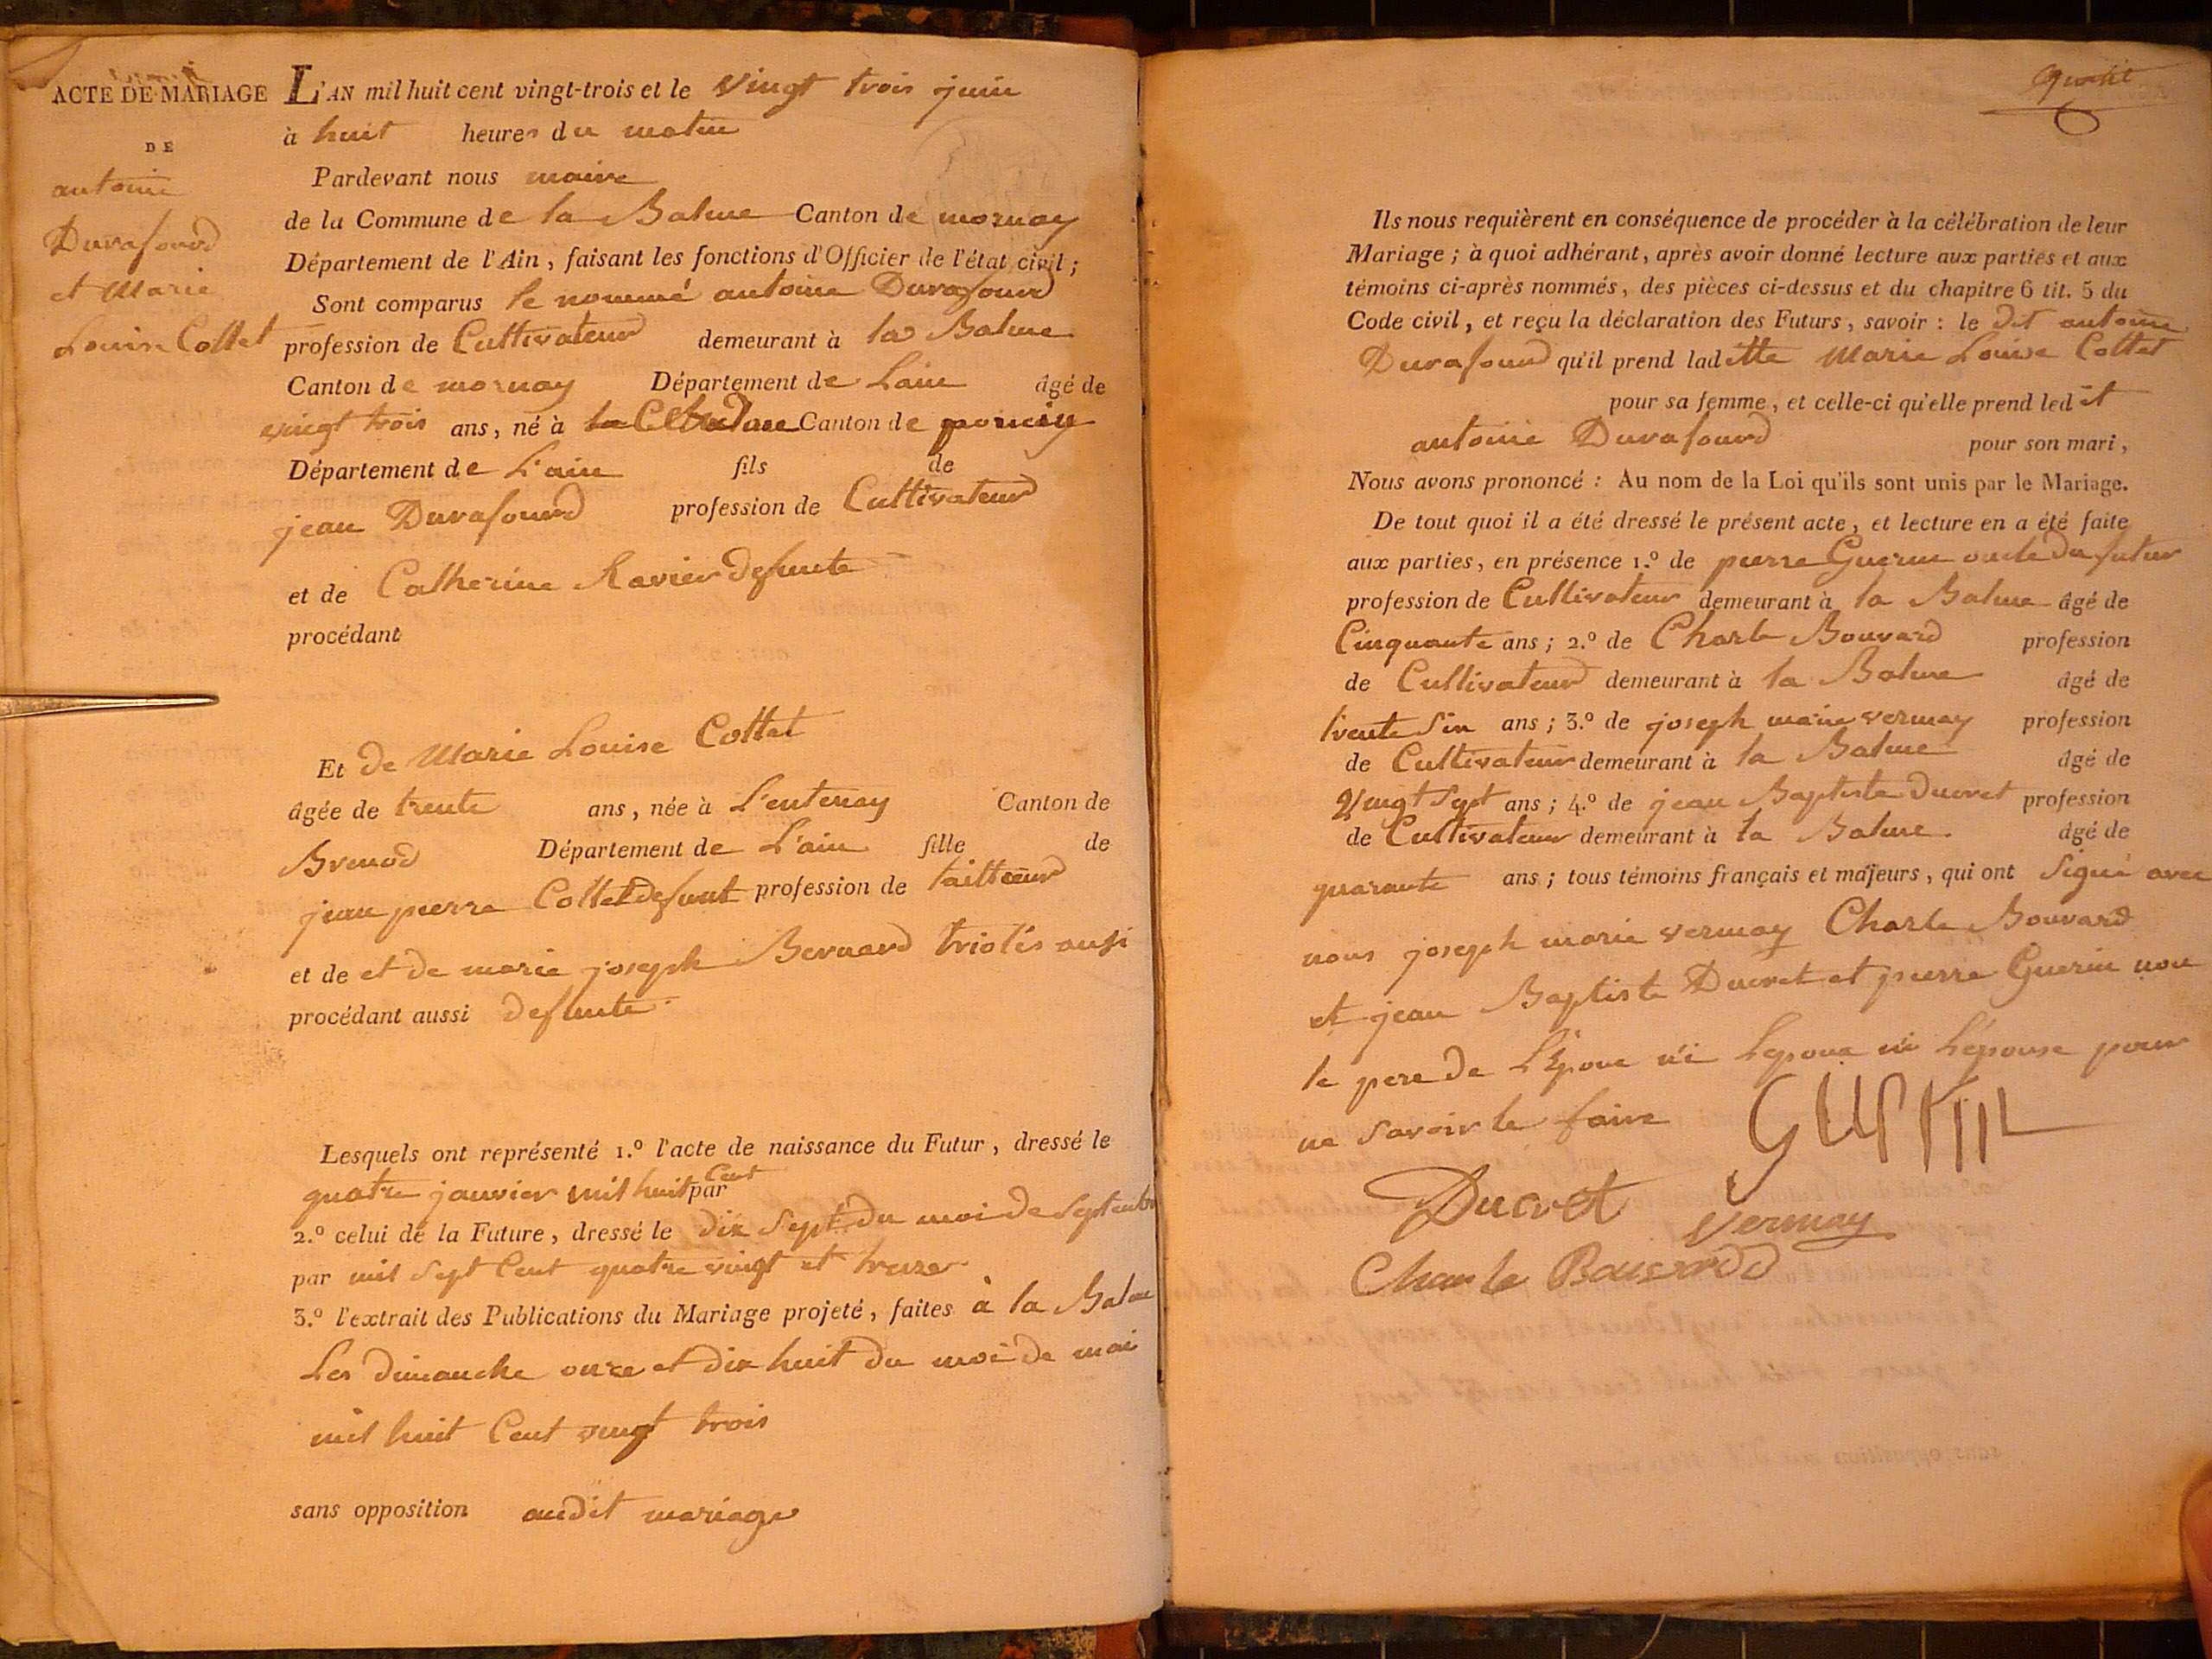 ACTE DE MARIAGE
DE
antoine
Durafourd
et Marie
Louise Cottet
L'AN mil huit cent vingt-trois et le vingt trois juin
à huit heures du matin
Pardevant nous maire
de la Commune de la Balme Canton de mornay
Département de l'Ain, faisant les fonctions d'Officier de l'état civil;
Sont comparus le nommé antoine Durafourd
profession de Cultivateur demeurant à la Balme
Canton de mornay Département de Lain âgé de
vingt trois ans, né à Canton de poncin
Département de L'ain fils de
jean Durafourd profession de Cultivateur
et de Catherine Ravier defunte
procédant
Et de Marie Louise Cottet
âgée de trente ans, née à L'entenay Canton de
Brenod Département de L'ain fille de
jean pierre Cottet defunt profession de tailleur
et de et de marie joseph Bernard triolés ausi
procédant aussi defunte
Lesquels ont représenté 1.º l'acte de naissance du Futur, dressé le
quatre janvier mil huit Cent par
2.º celui de la Future, dressé le dix Sept du moi de Septembre
par mil Sept Cent quatre vingt et treize
3.º l'extrait des Publications du Mariage projeté, faites à la Balme
Les dimanche onze et dix huit du moi de mai
mil huit Cent vingt trois
sans opposition audit mariage
Ils nous requièrent en conséquence de procéder à la célébration de leur
Mariage; à quoi adhérant, après avoir donné lecture aux parties et aux
témoins ci-après nommés, des pièces ci-dessus et du chapitre 6 tit. 5 du
Code civil, et reçu la déclaration des Futurs, savoir: le dit antoine
Durafourd qu'il prend laditte Marie Louise Cottet
pour sa femme, et celle-ci qu'elle prend ledit
antoine Durafourd pour son mari,
Nous avons prononcé: Au nom de la Loi qu'ils sont unis par le Mariage.
De tout quoi il a été dressé le présent acte, et lecture en a été faite
aux parties, en présence 1.º de pierre Guerin oncle du futur
profession de Cultivateur demeurant à la Balme âgé de
Cinquante ans; 2.º de Charle Bouvard profession
de Cultivateur demeurant à la Balme âgé de
trente Six ans; 3.º de joseph marie vermay profession
de Cultivateur demeurant à la Balme âgé de
Vingt Sept ans; 4.º de jean Baptiste Ducret profession
de Cultivateur demeurant à la Balme âgé de
quarante ans; tous témoins français et majeurs, qui ont Signé avec
nous joseph marie vermay Charle Bouvard
et jean Baptiste Ducret et pierre Guerin non
le pere de L'Epoux ni Lepoux ni L'épouse pour
ne Savoir le faire
Ducret Vermay
Charle Bouvard